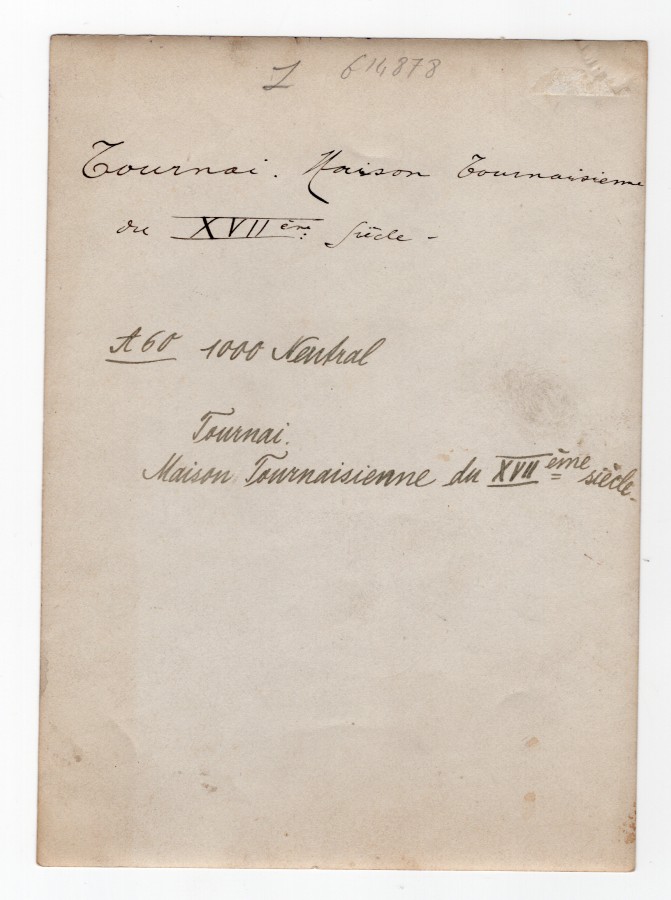 1 614878
Tournai. Maison Tournaisienne
du XVII ème Siècle -
A 60 1000 Neutral
Tournai.
Maison Tournaisienne du XVII ème siècle.